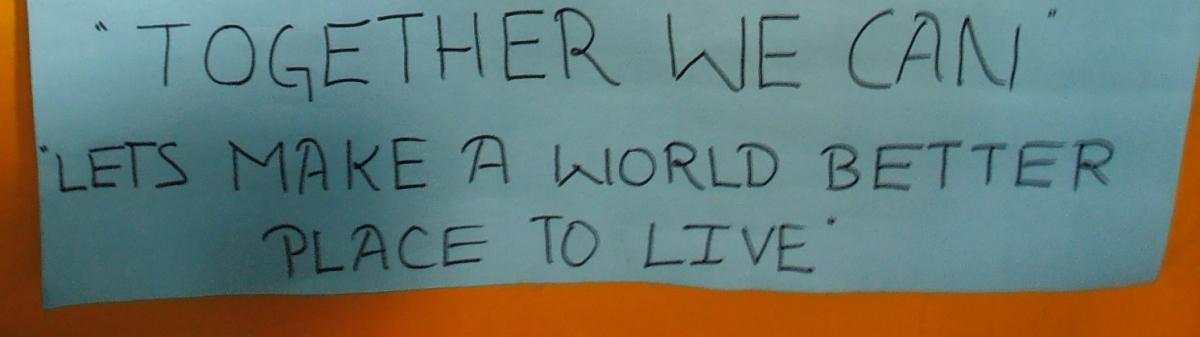 "TOGETHER WE CAN"
"LETS MAKE A WORLD BETTER
PLACE TO LIVE"